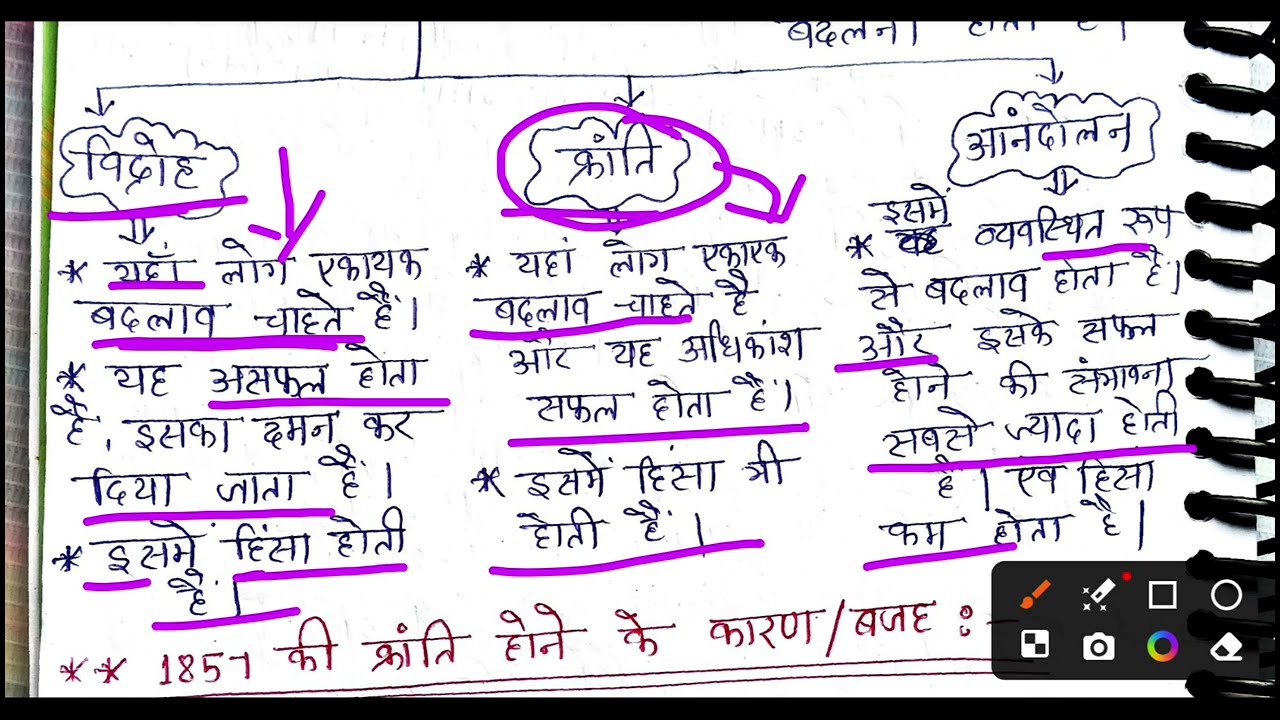 बदलना होता है।
विद्रोह
* यहाँ लोग एकायक
बदलाव चाहते हैं।
* यह असफल होता
है, इसका दमन कर
दिया जाता है।
* इसमें हिंसा होती
हैं।
क्रांति
* यहां लोग एकाएक
बदलाव चाहते है
और यह अधिकांश
सफल होता है।
* इसमें हिंसा भी
होती हैं।
आनंदोलन
इसमें
* व्यवस्थित रूप
से बदलाव होता है।
और इसके सफल
होने की संभावना
सबसे ज्यादा होती
है। एवं हिंसा
कम होता है।
** 1857 की क्रांति होने के कारण/बजह :-